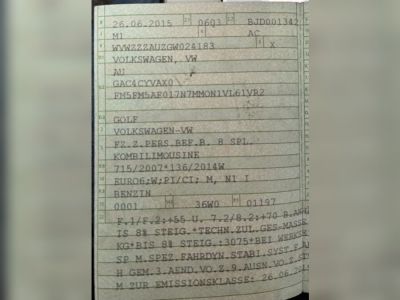 26.06.2015 0603 BJD001342
M1 AC
WVWZZZAUZGW024183 X
VOLKSWAGEN, VW
AU
GAC4CYVAX0
FM5FM5AF017N7MMON1VL61VR2
GOLF
VOLKSWAGEN-VW
FZ.Z.PERS.BEF.B. 8 SPL.
KOMBILIMOUSINE
715/2007*136/2014W
EURO6;W;PI/CI; M, N1 I
BENZIN
0001 36W0 01197
F.1/F.2:+55 U. 7.2/8.2:+70 B.
IS 8% STEIG.*TECHN.ZUL.GES-MASSE
KG*BIS 8% STEIG.:3075*BEI WERKS
SP M.SPEZ.FAHRDYN.STABI.SYST.F.
H GEM.3.AEND.VO.Z.9.AUSN.VO.Z.ST
M ZUR EMISSIONSKLASSE: 26.06.20